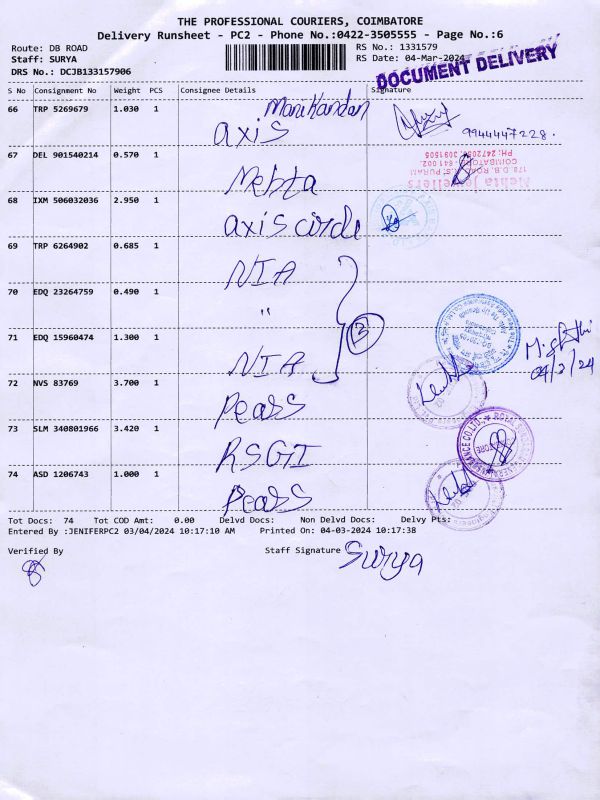 THE PROFESSIONAL COURIERS, COIMBATORE
Delivery Runsheet - PC2 - Phone No.:0422-3505555 - Page No.:6
Route: DB ROAD RS No.: 1331579
Staff: SURYA RS Date: 04-Mar-2024
DRS No.: DCJB133157906
DOCUMENT DELIVERY
S No Consignment No Weight PCS Consignee Details Signature
66 TRP 5269679 1.030 1 Manikandan
axis 9944447228.
67 DEL 901540214 0.570 1
Mehta
Mehta Jewellers
178, D.B. ROAD, R.S. PURAM
COIMBATORE - 641 002.
68 IXM 506032036 2.950 1
axis circle
69 TRP 6264902 0.685 1
NIA
70 EDQ 23264759 0.490 1
"
3
71 EDQ 15960474 1.300 1
NIA
04/3/24
72 NVS 83769 3.700 1
Pears
73 SLM 340801966 3.420 1
RSGI
74 ASD 1206743 1.000 1
Pears
Tot Docs: 74 Tot COD Amt: 0.00 Delvd Docs: Non Delvd Docs: Delvy Pts:
Entered By :JENIFERPC2 03/04/2024 10:17:10 AM Printed On: 04-03-2024 10:17:38
Verified By Staff Signature Surya